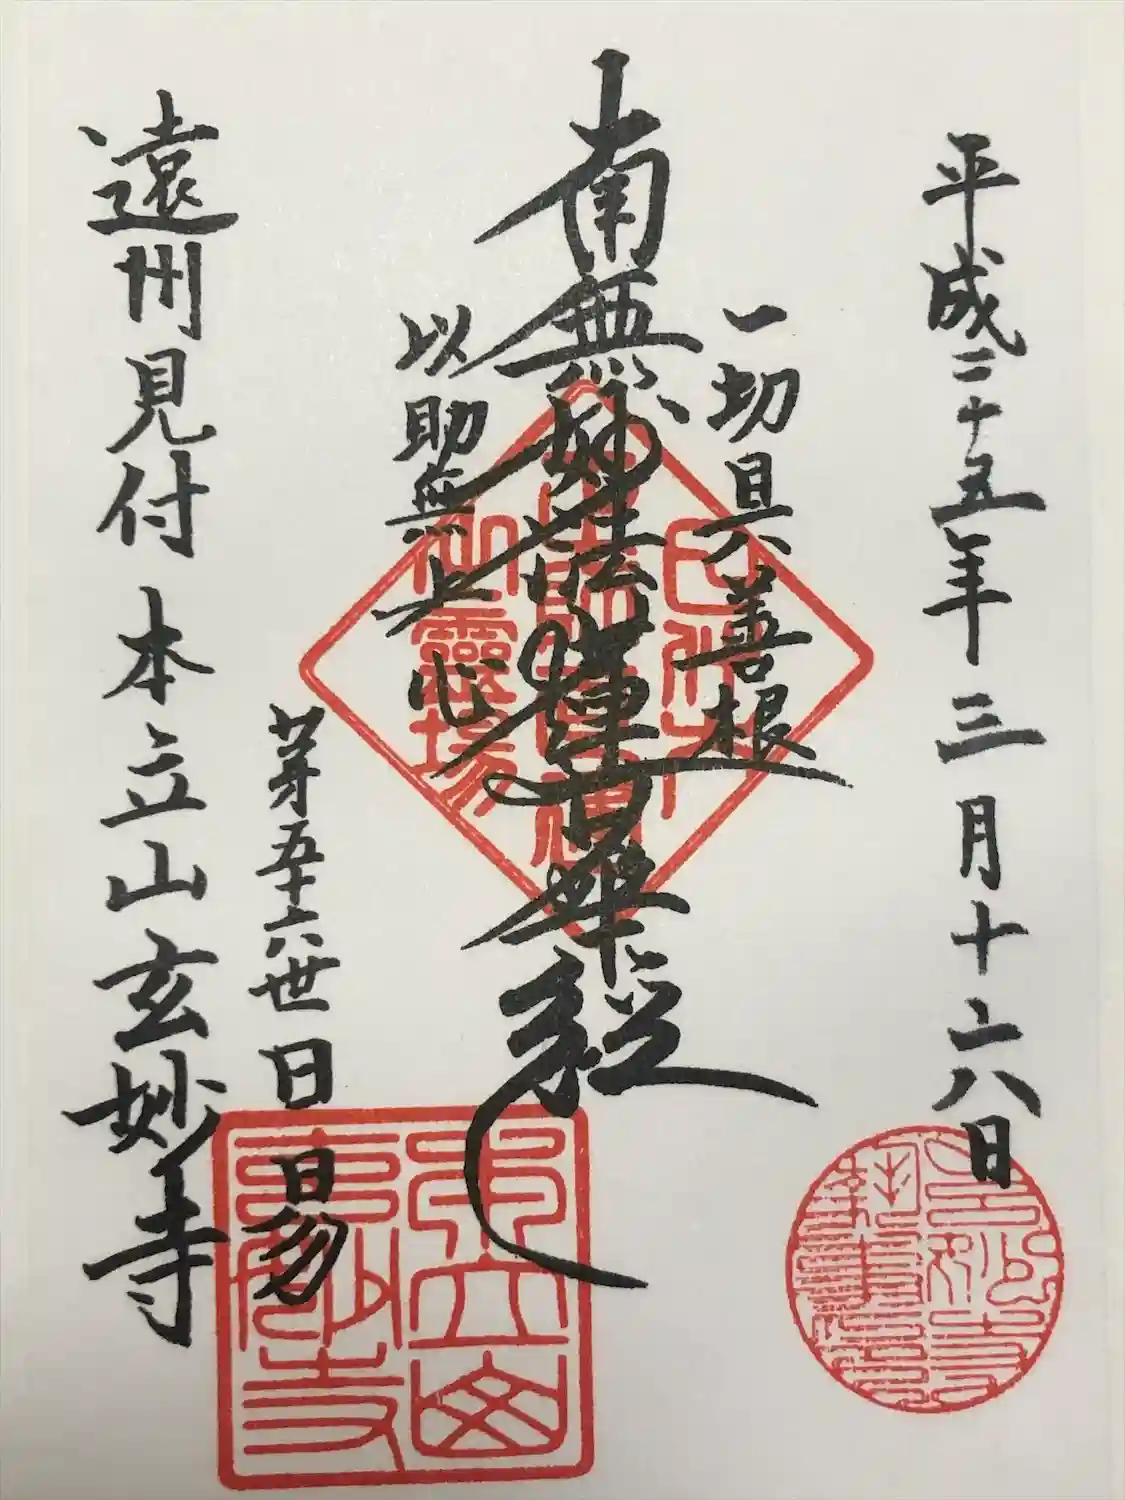 平成二十五年三月十六日
一切具善根
南無妙法蓮華経
以助無上心
第五十六世日昜
遠州見付本立山玄妙寺
本立山
玄妙寺